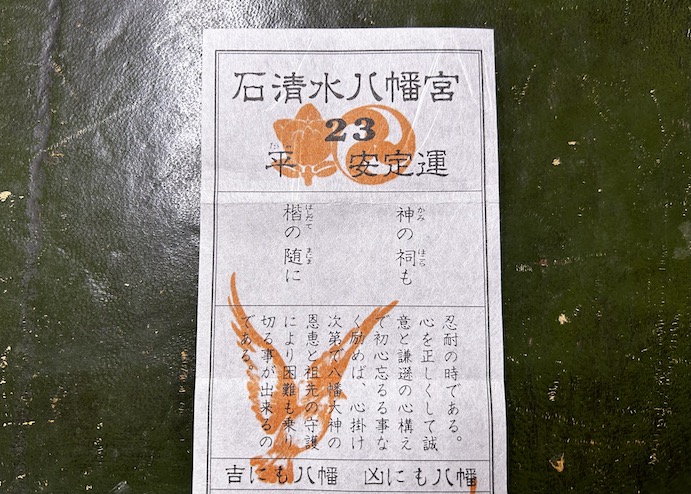 石清水八幡宮
23
平 安定運
神の祠も
楷の随に
忍耐の時である。
心を正しくして誠
意と謙遜の心構え
で初心忘るる事な
く励めば、心掛け
次第で八幡大神の
恩恵と祖先の守護
により困難も乗り
切る事が出来るの
である。
吉にも八幡 凶にも八幡